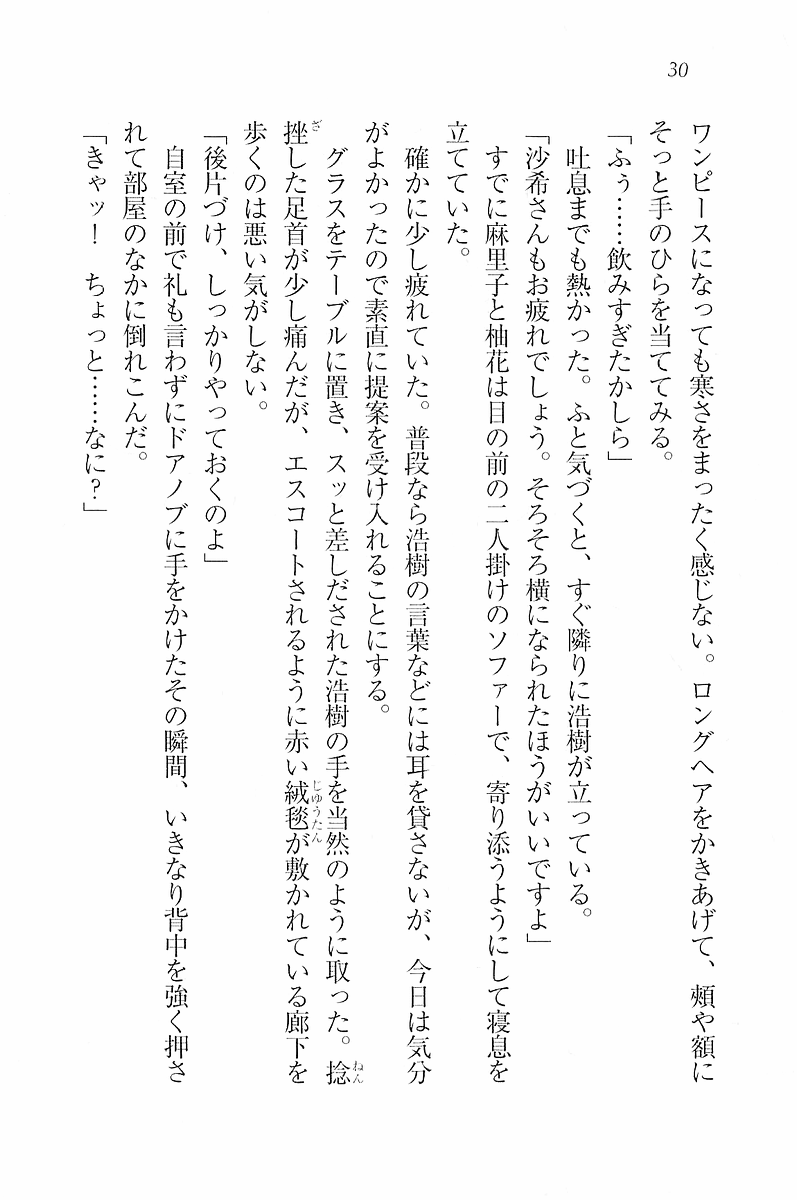 30
ワンピースになっても寒さをまったく感じない。ロングヘアをかきあげて、頰や額に
そっと手のひらを当ててみる。
「ふぅ……飲みすぎたかしら」
吐息までも熱かった。ふと気づくと、すぐ隣りに浩樹が立っている。
「沙希さんもお疲れでしょう。そろそろ横になられたほうがいいですよ」
すでに麻里子と柚花は目の前の二人掛けのソファーで、寄り添うようにして寝息を
立てていた。
確かに少し疲れていた。普段なら浩樹の言葉などには耳を貸さないが、今日は気分
がよかったので素直に提案を受け入れることにする。
グラスをテーブルに置き、スッと差しだされた浩樹の手を当然のように取った。捻
挫した足首が少し痛んだが、エスコートされるように赤い絨毯が敷かれている廊下を
歩くのは悪い気がしない。
「後片づけ、しっかりやっておくのよ」
自室の前で礼も言わずにドアノブに手をかけたその瞬間、いきなり背中を強く押さ
れて部屋のなかに倒れこんだ。
「きゃッ！　ちょっと……なに？」
ねん
ざ
じゅうたん